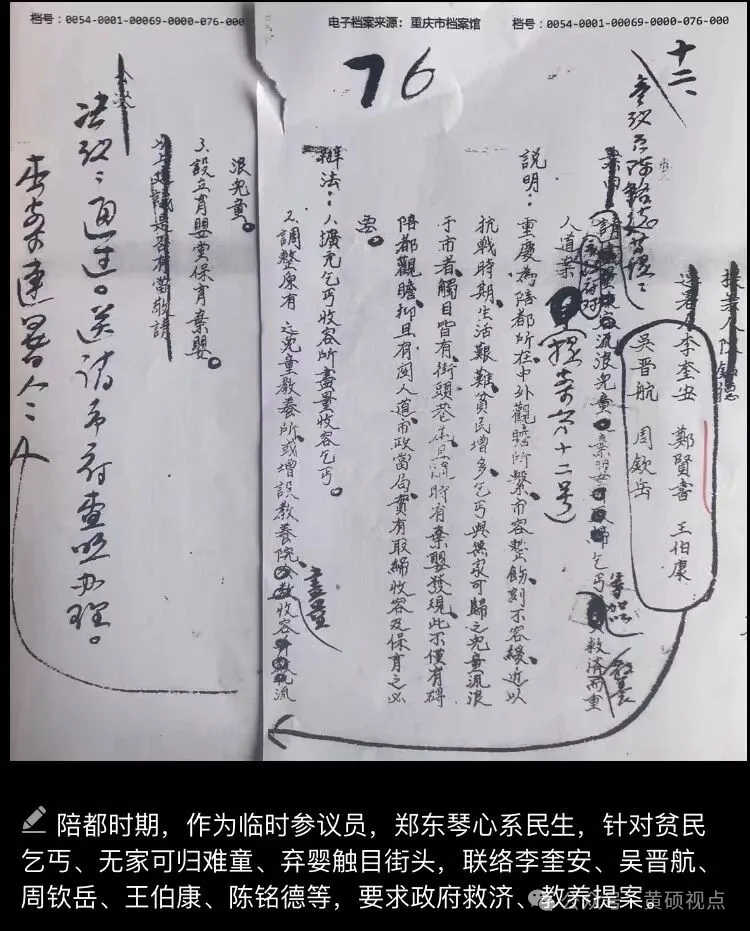 档号：0054-0001-00069-0000-076-000
电子档案来源：重庆市档案馆
档号：0054-0001-00069-0000-076-000
76
十二、
連署人李奎安 鄭賢書 王伯康
吳晋航 周欽岳
人道案
說明：重慶為陪都所在中外觀瞻所繫市容整飭刻不容緩近以
抗戰時期生活艱難貧民增多乞丐與無家可歸之兒童流浪
于市者觸目皆有街頭巷末且流時有棄嬰發現此不僅有碍
陪都觀瞻抑且有関人道市政當局實有取締收容及保育之必
要。
辦法：1、擴充乞丐收容所盡量收容乞丐。
2、調整原有
兒童教養所或增設教養院
盡量
收容
流
浪兒童。
3、設立育嬰堂保育棄嬰。
以上建議是否有當敬請
决议：通过。送请市府查照办理。
李奎安連署人：
陪都时期，作为临时参议员，郑东琴心系民生，针对贫民
乞丐、无家可归难童、弃婴触目街头，联络李奎安、吴晋航、
周钦岳、王伯康、陈铭德等，要求政府救济、教养提案。
黄硕视点